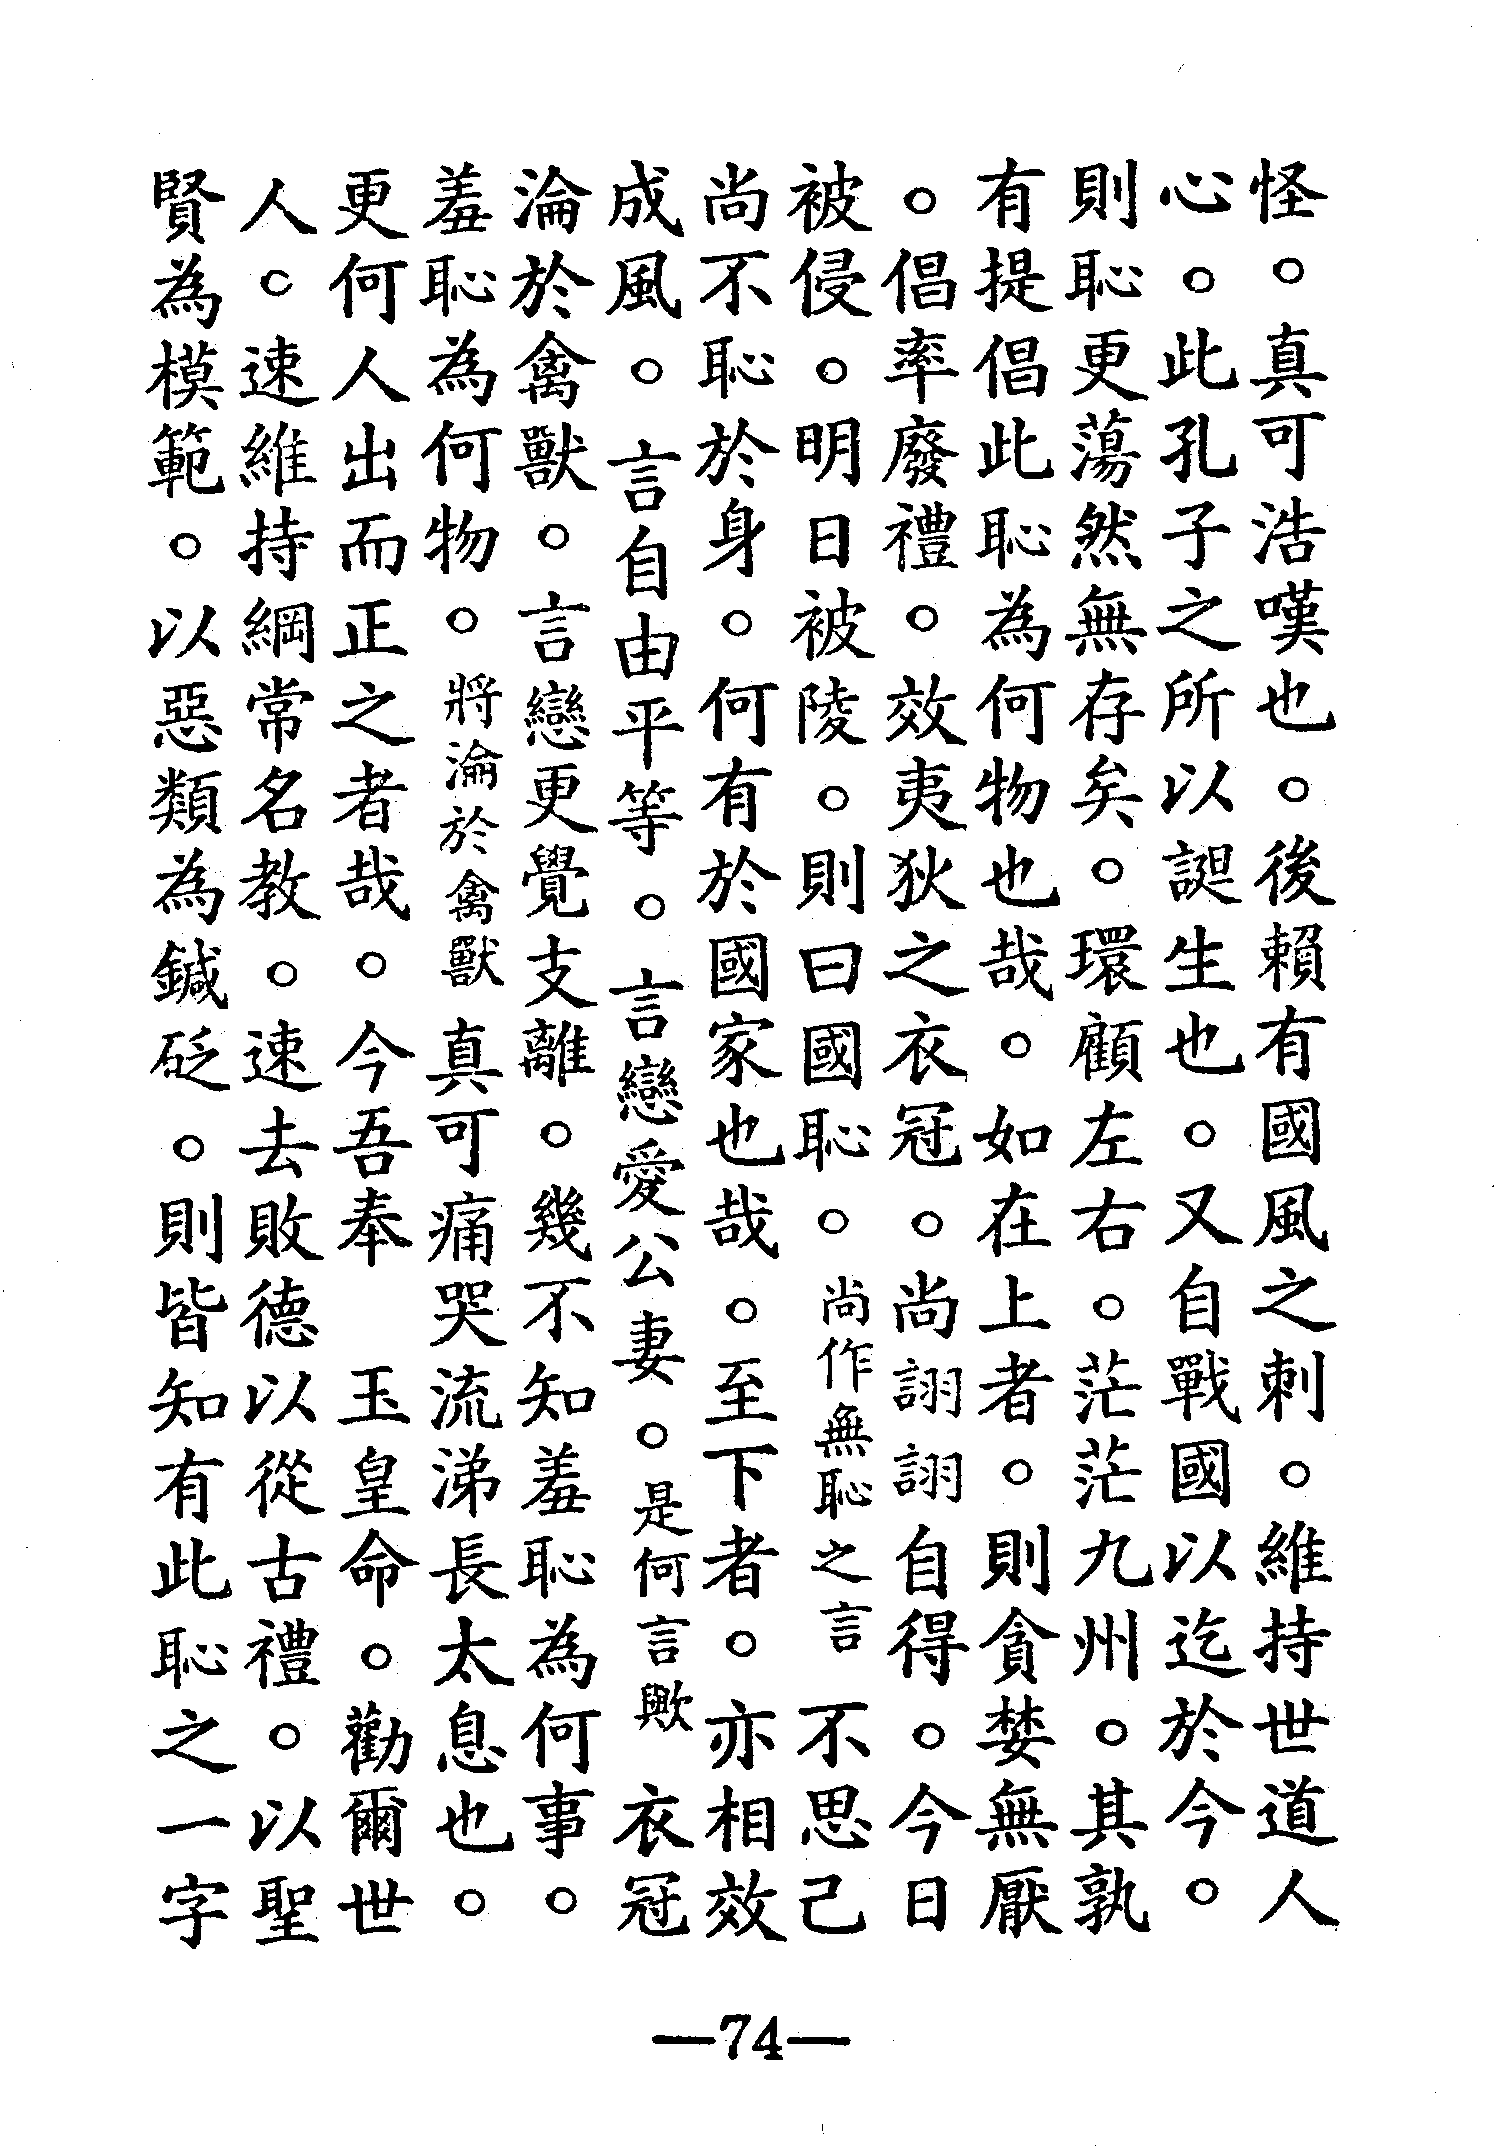 怪。真可浩嘆也。後賴有國風之刺。維持世道人
心。此孔子之所以誕生也。又自戰國以迄於今。
則恥更蕩然無存矣。環顧左右。茫茫九州。其孰
有提倡此恥為何物也哉。如在上者。則貪婪無厭
。倡率廢禮。效夷狄之衣冠。尚詡詡自得。今日
被侵。明日被陵。則曰國恥。尚作無恥之言 不思己
尚不恥於身。何有於國家也哉。至下者。亦相效
成風。言自由平等。言戀愛公妻。是何言歟 衣冠
淪於禽獸。言戀更覺支離。幾不知羞恥為何事。
羞恥為何物。將淪於禽獸 真可痛哭流涕長太息也。
更何人出而正之者哉。今吾奉 玉皇命。勸爾世
人。速維持綱常名教。速去敗德以從古禮。以聖
賢為模範。以惡類為鍼砭。則皆知有此恥之一字
—74—